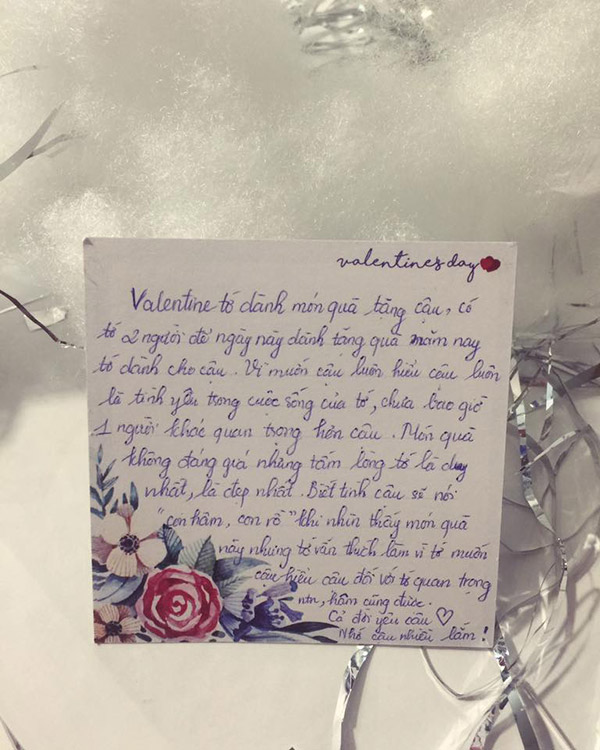 valentines day
Valentine tớ dành món quà tặng cậu, có
tớ 2 người để ngày này dành tặng quà năm nay
tớ dành cho cậu. Vì muốn cậu luôn hiểu cậu luôn
là tình yêu trong cuộc sống của tớ, chưa bao giờ
1 người khác quan trọng hơn cậu. Món quà
không đáng quá nhưng tấm lòng tớ là duy
nhất, là đẹp nhất. Biết tính cậu sẽ nói
"con hâm, con rồ" khi nhìn thấy món quà
này nhưng tớ vẫn thích làm vì tớ muốn
cậu hiểu cậu đối với tớ quan trọng
ntn, hâm cũng được.
Cả đời yêu cậu ♡
Nhớ cậu nhiều lắm!